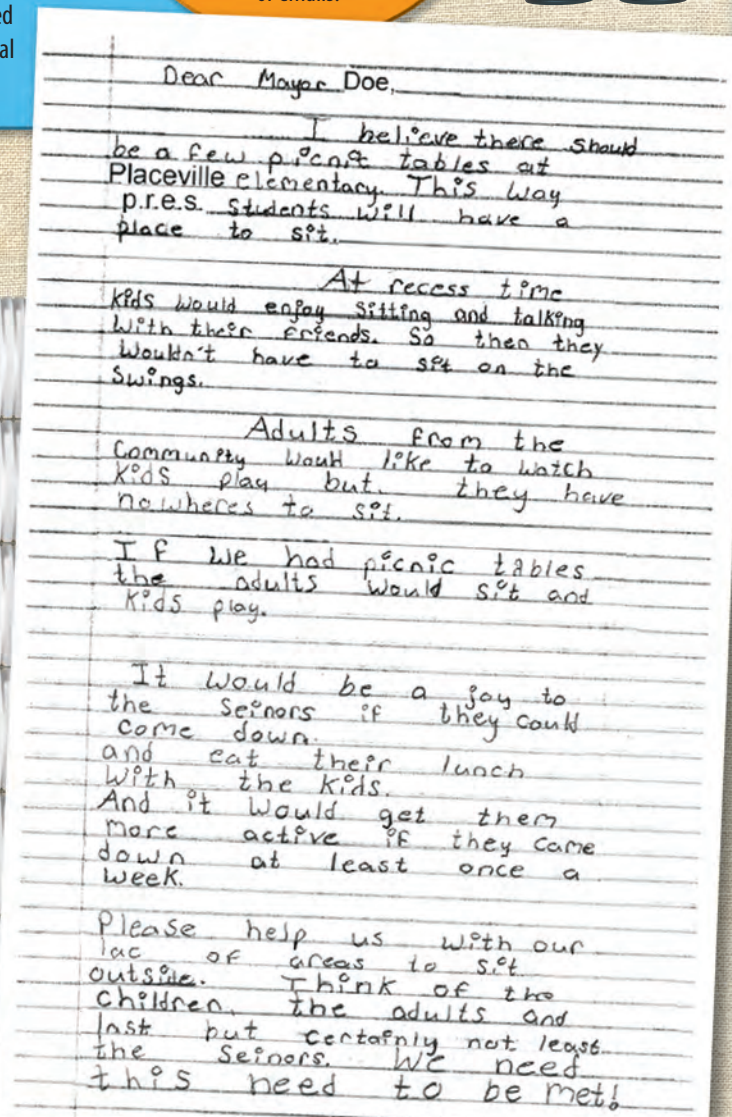 ed
al
Dear Mayor Doe,
I believe there should
be a few picnic tables at
Placeville elementary. This way
p.r.e.s. students will have a
place to sit.
At recess time
kids would enjoy sitting and talking
with their friends. So then they
wouldn't have to sit on the
swings.
Adults from the
community would like to watch
kids play but. they have
nowheres to sit.
If we had picnic tables
the adults would sit and
kids play.
It would be a joy to
the seinors if they could
come down.
and eat their lunch
with the kids.
And it would get them
more active if they came
down at least once a
week.
Please help us with our
lac of areas to sit
outside. Think of the
children, the adults and
last but certainly not least
the seinors. We need
this need to be met!